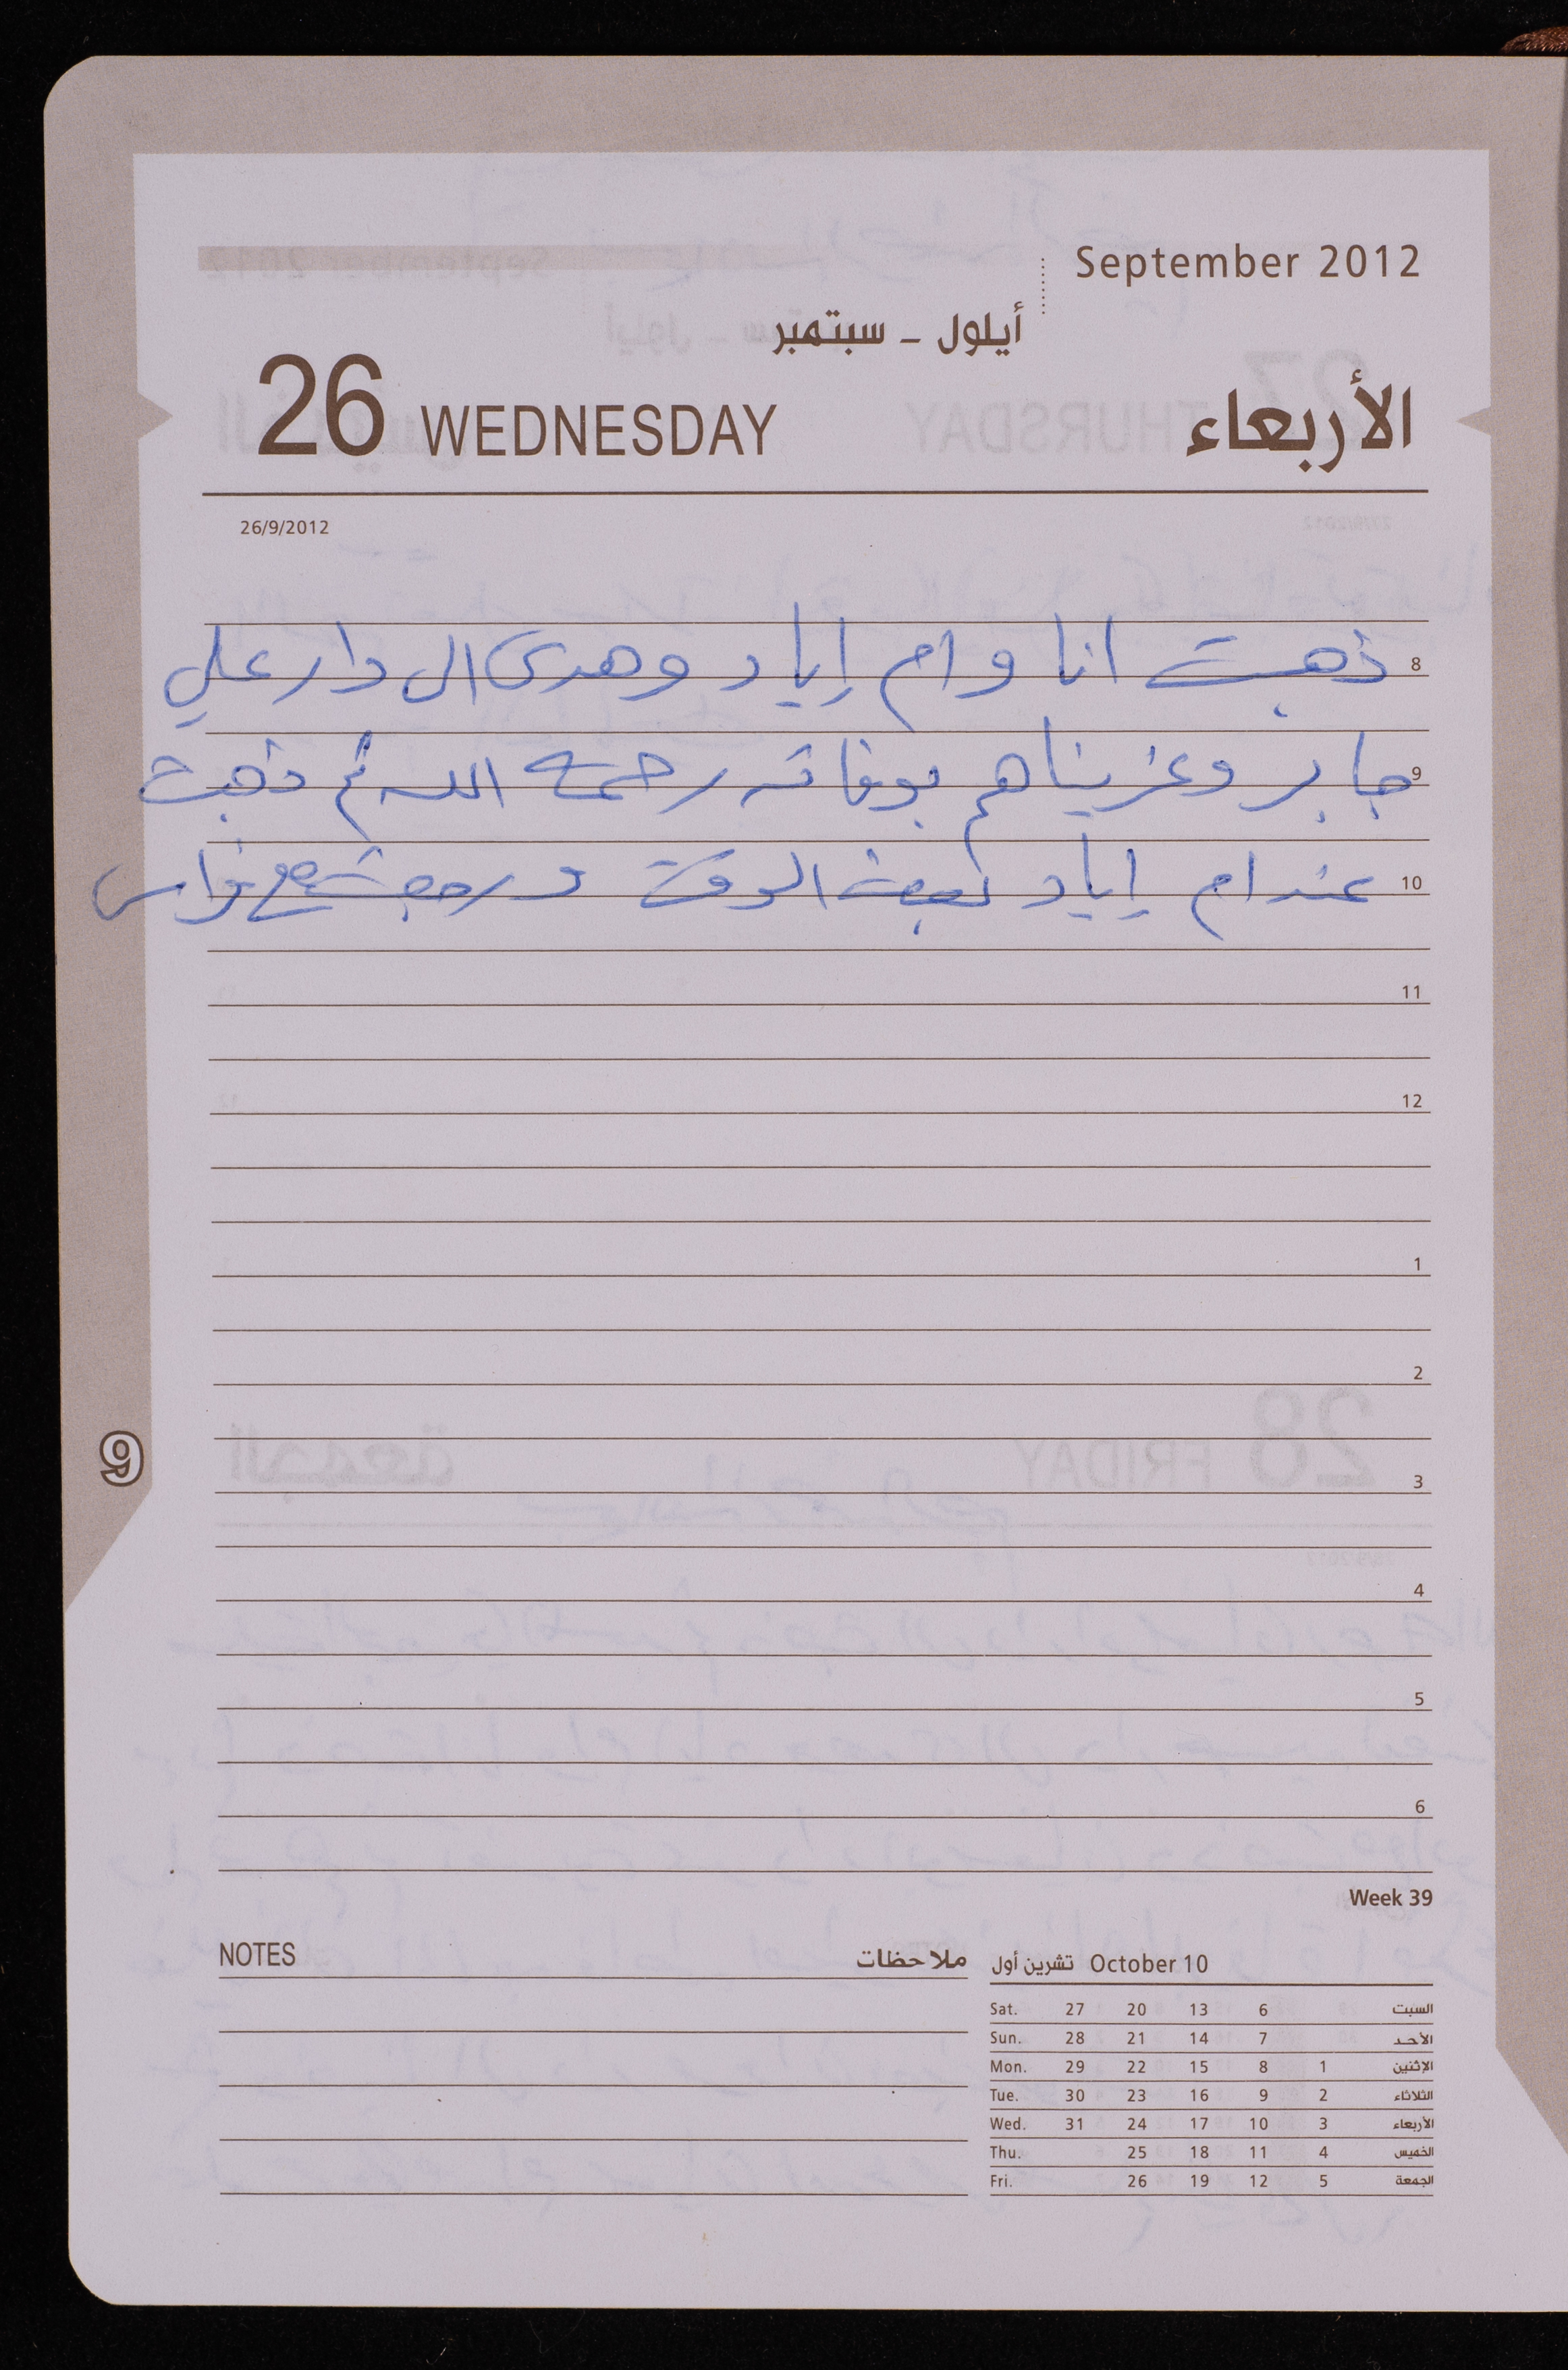 September 2012
أيلول - سبتمبر
26 WEDNESDAY الأربعاء
26/9/2012
8 ذهبت انا وام إياد وهدى الى دار علي
9 جابر وعزيناهم بوفاته رحمه الله ثم ذهبت
10 عند ام إياد لبعض الوقت ورجعت مع فراس
11
12
1
2
3
4
5
6
9
Week 39
NOTES ملاحظات
تشرين أول October 10
Sat. 27 20 13 6 السبت
Sun. 28 21 14 7 الأحد
Mon. 29 22 15 8 1 الإثنين
Tue. 30 23 16 9 2 الثلاثاء
Wed. 31 24 17 10 3 الأربعاء
Thu. 25 18 11 4 الخميس
Fri. 26 19 12 5 الجمعة